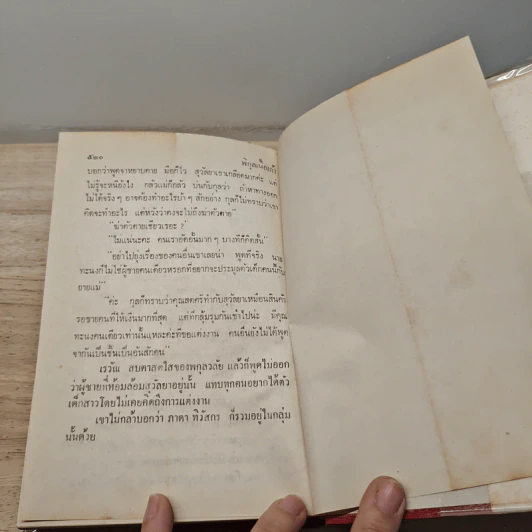 ๕๒๐
พิกุลแกมเกด
บอกว่าพูดจาหยาบคาย มือก็ไว สุวัลยาเขาเกลียดมากค่ะ แต่
ไม่รู้จะหนียังไง กลัวแม่ก็กลัว บ่นกับกุลว่า ถ้าหาทางออก
ไม่ได้จริง ๆ อาจต้องทำอะไรบ้า ๆ สักอย่าง กุลก็ไม่ทราบว่าเขา
คิดจะทำอะไร แต่หวังว่าคงจะไม่ถึงฆ่าตัวตาย"
"ฆ่าตัวตายเชียวเรอะ ?"
"ไม่แน่นะคะ คนเราอัดอั้นมาก ๆ บางทีก็คิดสั้น"
"อย่าไปยุ่งเรื่องของคนอื่นเขาเลยน่า พูดที่จริง นาย
ทะนงก็ไม่ใช่ผู้ชายคนเดียวหรอกที่อยากจะประมูลตัวเด็กคนนี้กับ
ยายแม่"
"ค่ะ กุลก็ทราบว่าคุณสดศรีทำกับสุวัลยาเหมือนสินค้า
รอขายคนที่ให้เงินมากที่สุด แต่ที่กลุ้มรุมกันเข้าไปน่ะ มีคุณ
ทะนงคนเดียวเท่านั้นแหละค่ะที่ขอแต่งงาน คนอื่นยังไม่ได้พูด
จากันเป็นชิ้นเป็นอันสักคน"
เรวัณ สบตาสดใสของพกุลวลัย แล้วก็พูดไม่ออก
ว่าผู้ชายที่ห้อมล้อมสุวัลยาอยู่นั้น แทบทุกคนอยากได้ตัว
เด็กสาวโดยไม่เคยคิดถึงการแต่งงาน
เขาไม่กล้าบอกว่า ภาดา ทิวัสกร ก็รวมอยู่ในกลุ่ม
นั้นด้วย